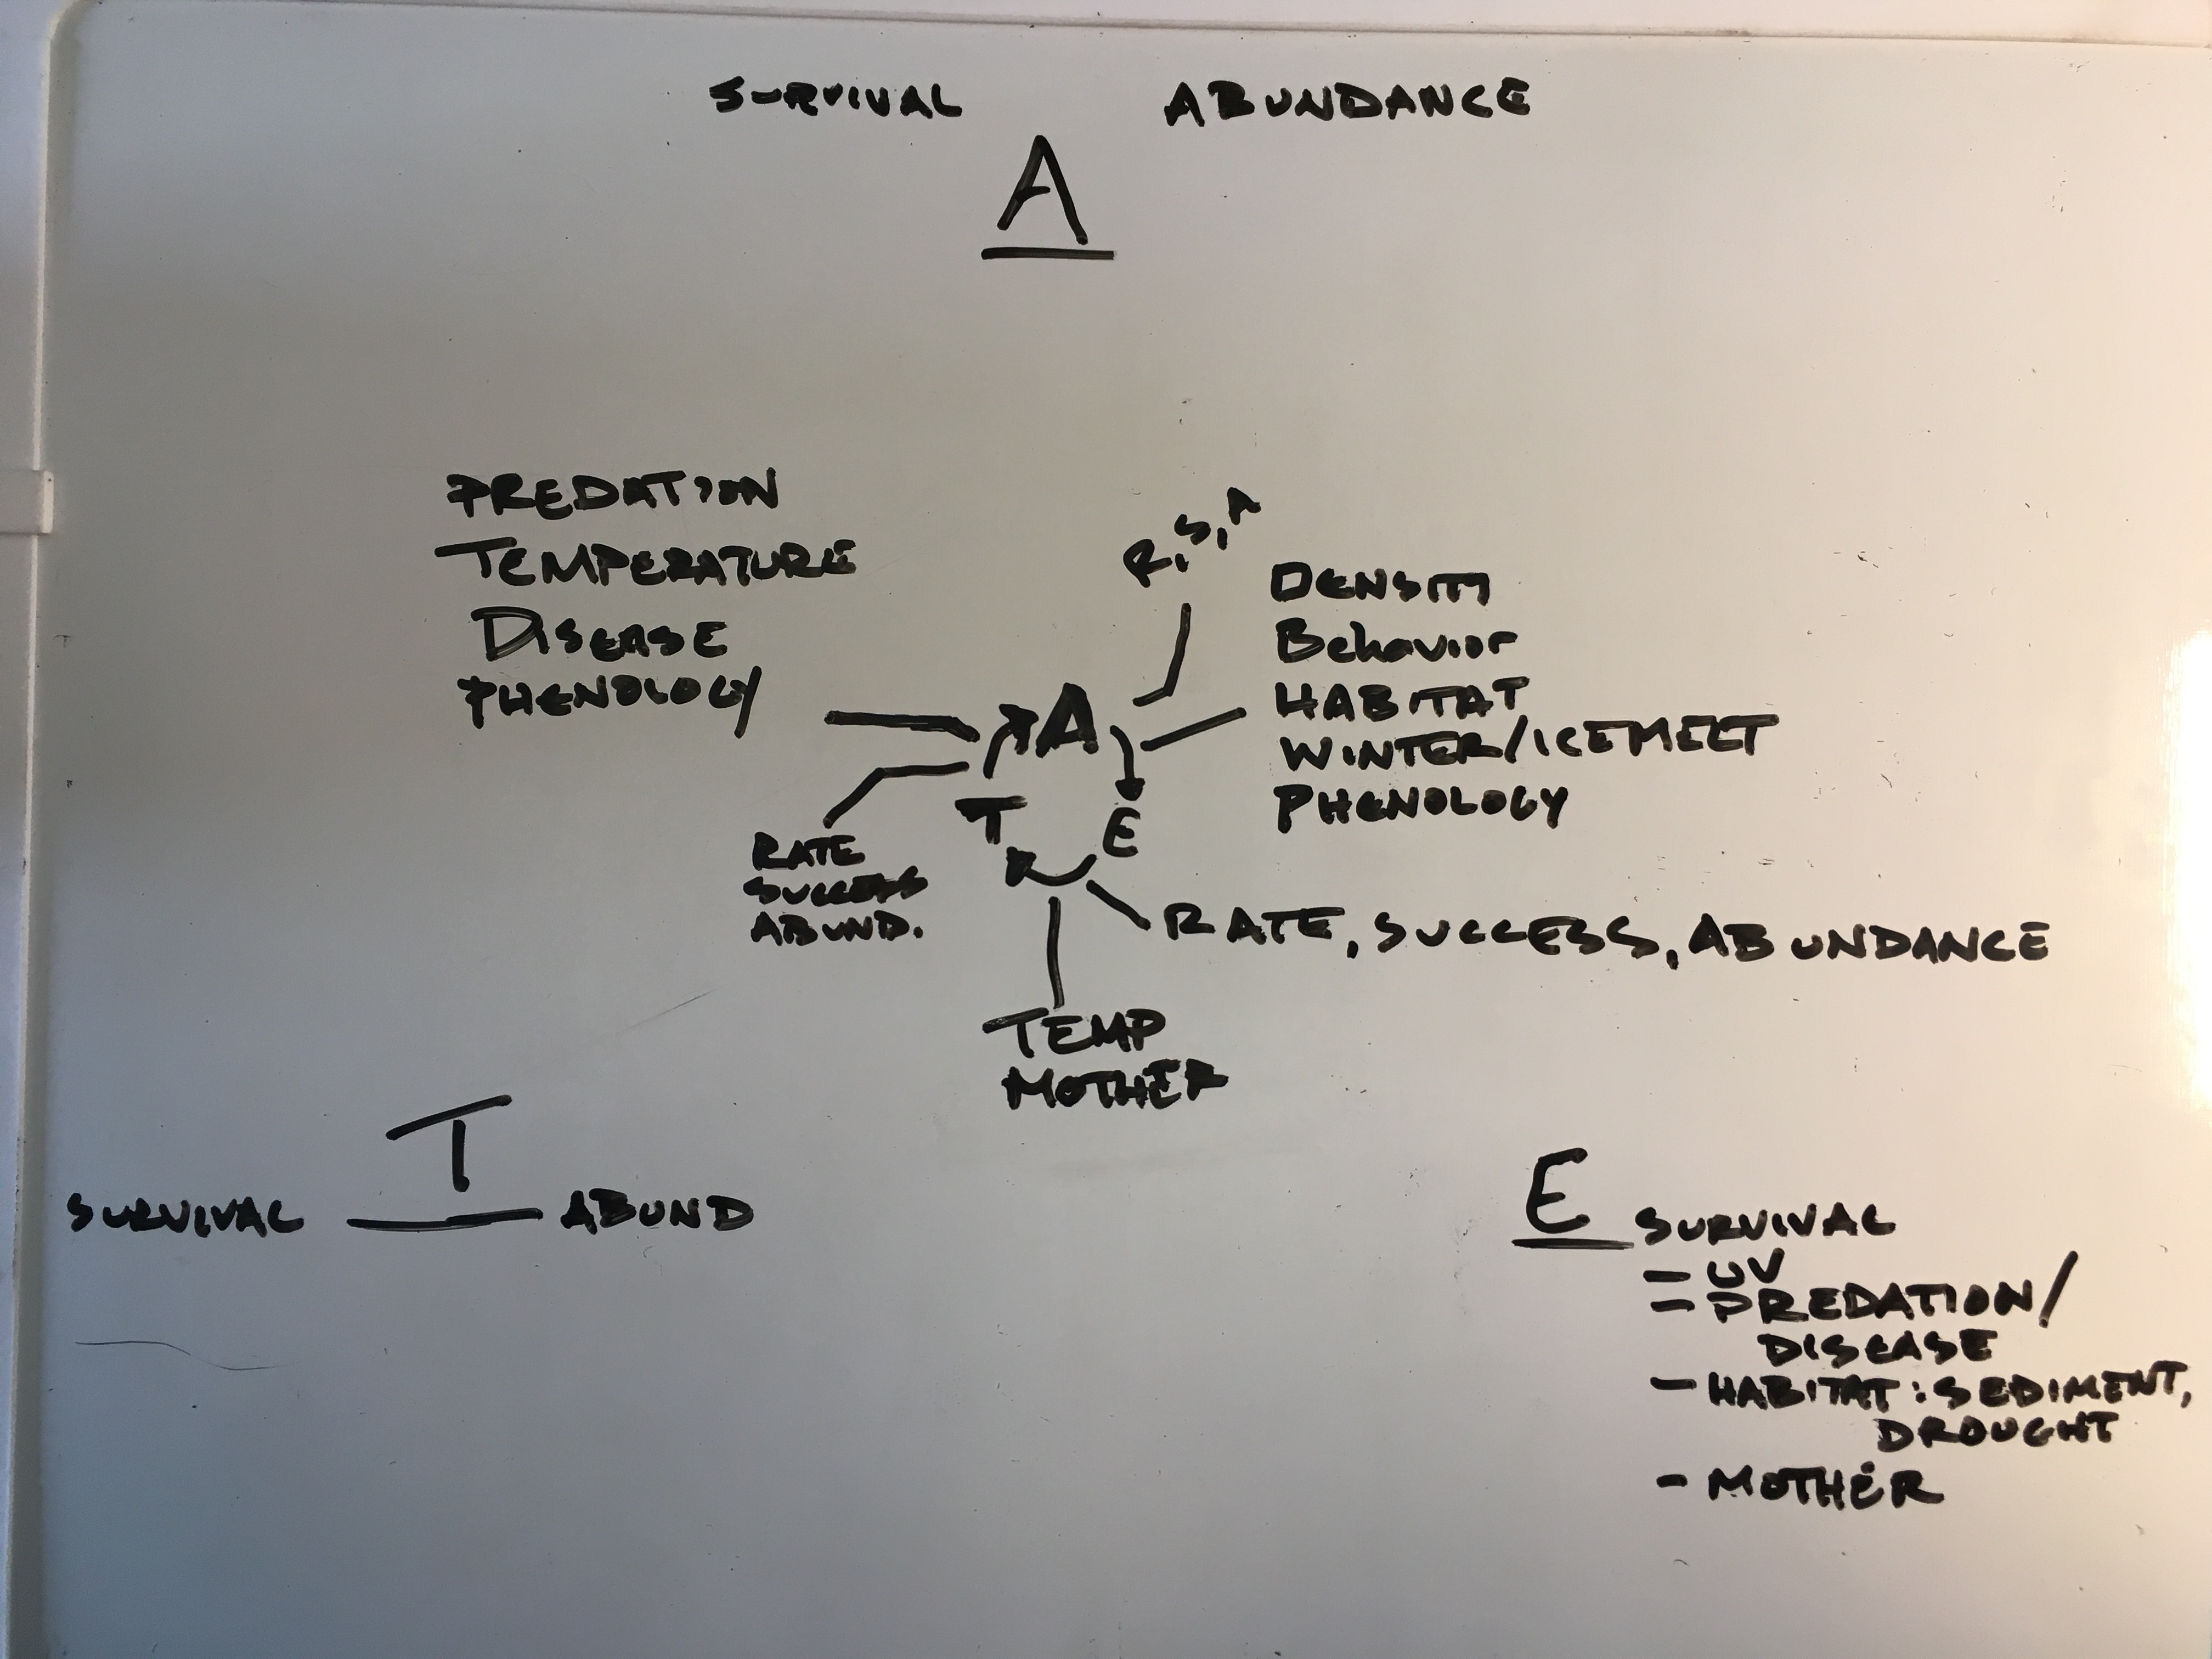 SURVIVAL ABUNDANCE
A
PREDATION
TEMPERATURE
DISEASE
PHENOLOGY
R, S, A
DENSITY
Behavior
HABITAT
WINTER/ICEMELT
PHENOLOGY
A
T E
RATE
SUCCESS
ABUND.
RATE, SUCCESS, ABUNDANCE
TEMP
MOTHER
T
SURVIVAL ABUND
E SURVIVAL
- UV
- PREDATION/
DISEASE
- HABITAT: SEDIMENT,
DROUGHT
- MOTHER